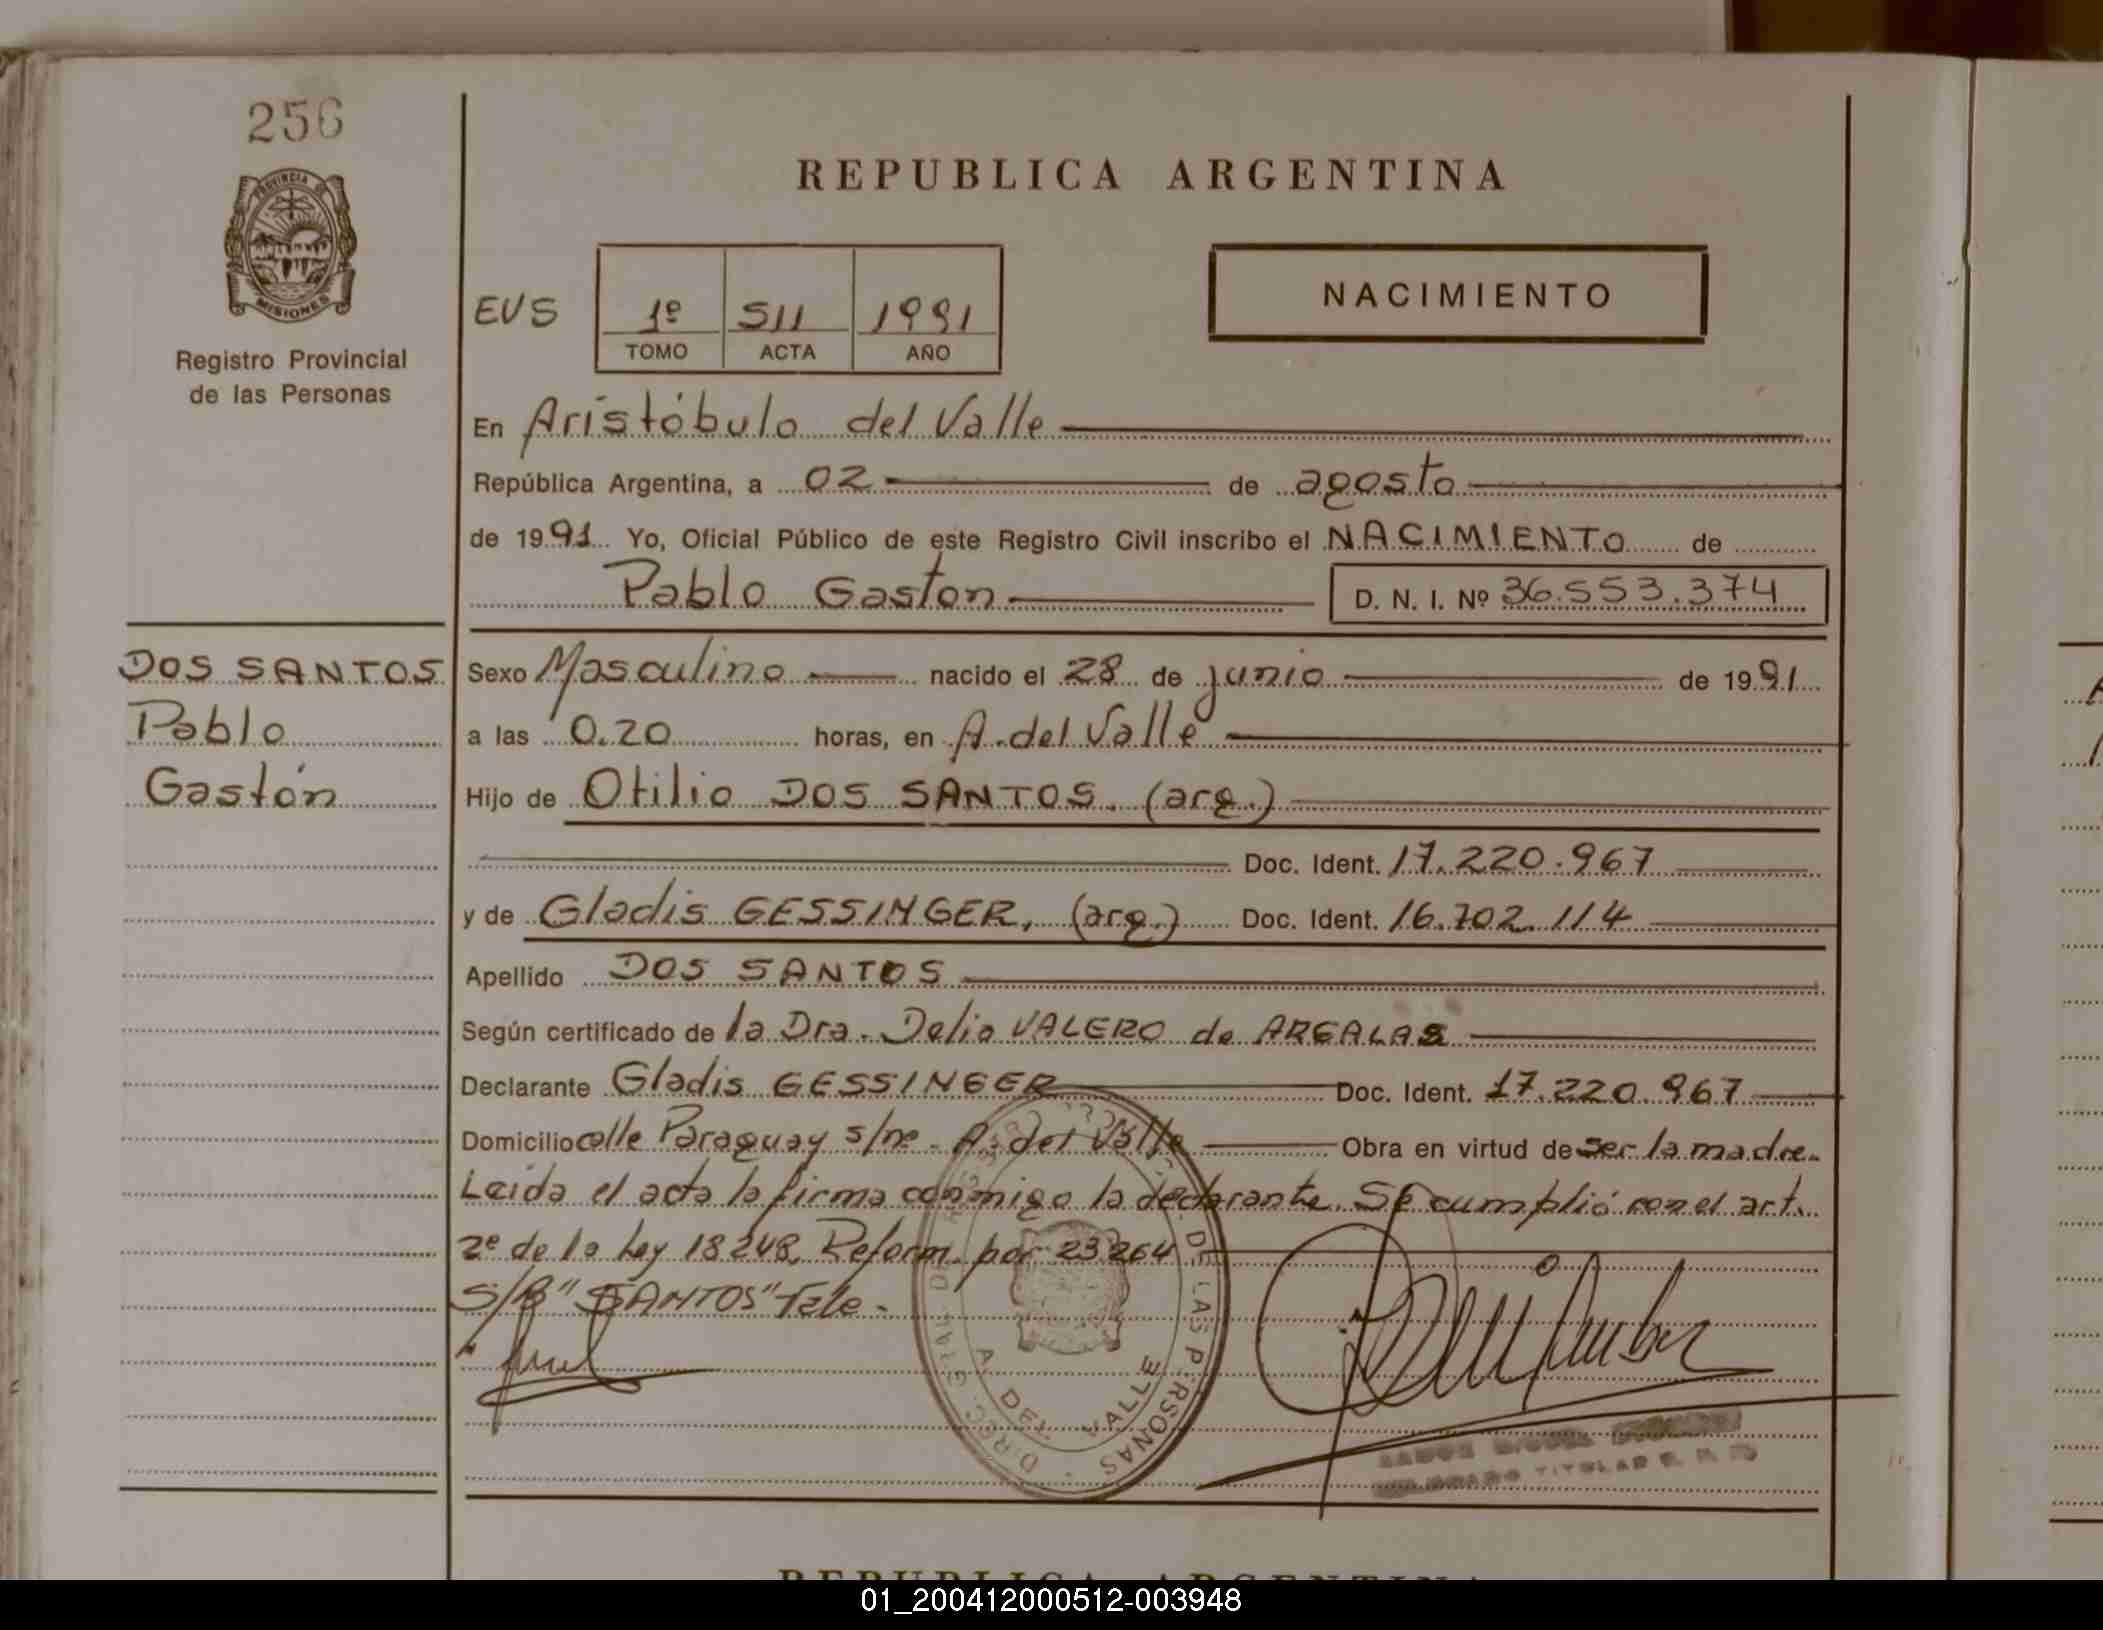 256
PROVINCIA DE
MISIONES
Registro Provincial
de las Personas
DOS SANTOS
Pablo
Gastón
REPUBLICA ARGENTINA
EVS 1º 511 1991
TOMO ACTA AÑO
NACIMIENTO
En Aristóbulo del Valle
República Argentina, a 02 de agosto
de 1991 Yo, Oficial Público de este Registro Civil inscribo el NACIMIENTO de
Pablo Gaston D. N. I. Nº 36.553.374
Sexo Masculino nacido el 28 de junio de 1991
a las 0.20 horas, en A. del Valle
Hijo de Otilio DOS SANTOS. (arg.)
Doc. Ident. 17.220.967
y de Gladis GESSINGER, (arg.) Doc. Ident. 16.702.114
Apellido DOS SANTOS
Según certificado de la Dra. Delia VALERO de
Declarante Gladis GESSINGER Doc. Ident. 17.220.967
Domicilio calle Paraguay s/nº - A. del Valle Obra en virtud de ser la madre.
Leida el acta la firma conmigo la declarante. Se cumplió con el art.
2º de la Ley 18248, Reform. por 23264
S/B "SANTOS" Vale.
DE LAS PERSONAS
A. DEL VALLE
TITULAR
REPUBLICA ARGENTINA
01_200412000512-003948